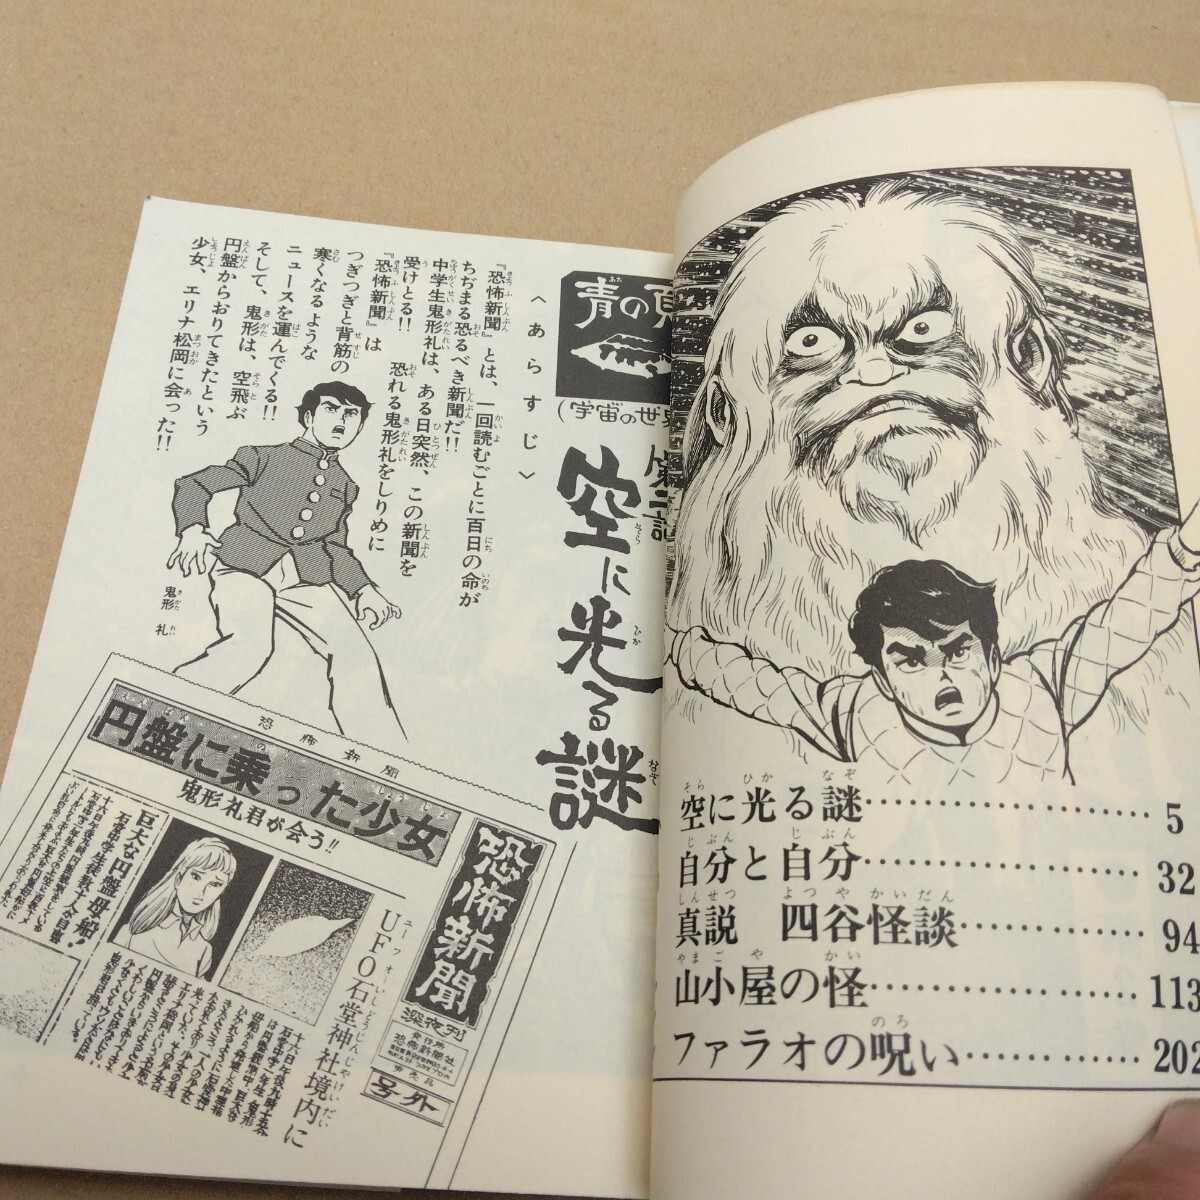 青の頁
(宇宙の世界
第三話
空に光る謎
〈あらすじ〉
『恐怖新聞』とは、一回読むごとに百日の命が
ちぢまる恐るべき新聞だ!!
中学生鬼形礼は、ある日突然、この新聞を
受けとる!!　恐れる鬼形礼をしりめに
『恐怖新聞』は
つぎつぎと背筋の
寒くなるような
ニュースを運んでくる!!
そして、鬼形は、空飛ぶ
円盤からおりてきたという
少女、エリナ松岡に会った!!
鬼形　礼
恐怖新聞
円盤に乗った少女
鬼形礼君が会う!!
恐怖新聞
深夜刊
発行所
恐怖新聞社
号外
UFO石堂神社境内に
巨大な円盤母船!
石堂中学生徒数人が目撃
空に光る謎……………… 5
自分と自分……………… 32
真説　四谷怪談………… 94
山小屋の怪……………… 113
ファラオの呪い………… 202